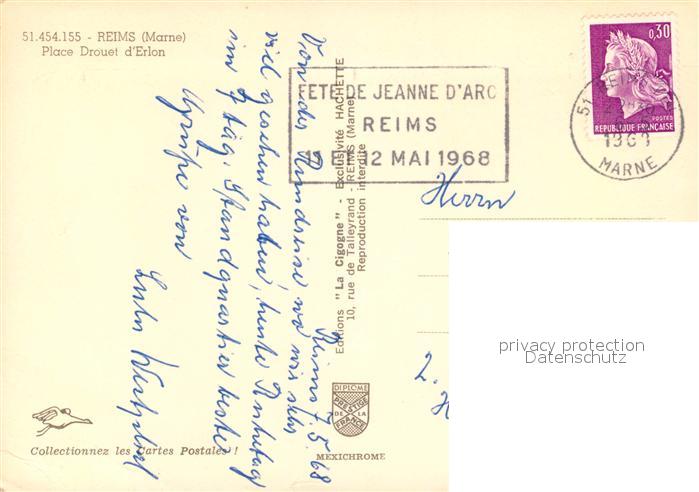 51.454.155 - REIMS (Marne)
Place Drouet d'Erlon
0,30
POSTES
REPUBLIQUE FRANÇAISE
MARNE
FETE DE JEANNE D'ARC
REIMS
11 ET 12 MAI 1968
Herrn
Reims 7.5.68
Von der Rundreise wo wir sehr
viel gesehen haben, heute Ruhetag
im 7 täg. Standquartier beste
Grüße von
Editions "La Cigogne" - Exclusivité HACHETTE
10, rue de Talleyrand - REIMS (Marne)
Reproduction interdite
privacy protection
Datenschutz
DIPLOME
PRESTIGE
DE LA
FRANCE
Collectionnez les Cartes Postales !
MEXICHROME